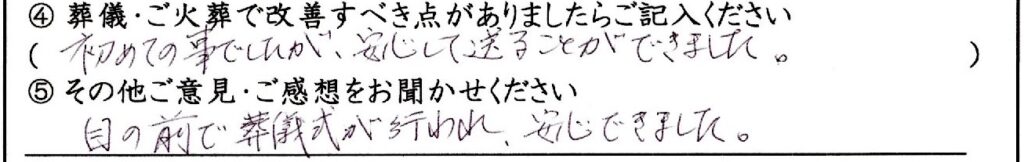 ④ 葬儀・ご火葬で改善すべき点がありましたらご記入ください
( 初めての事でしたが、安心して送ることができました。 )
⑤ その他ご意見・ご感想をお聞かせください
目の前で葬儀式が行われ、安心できました。